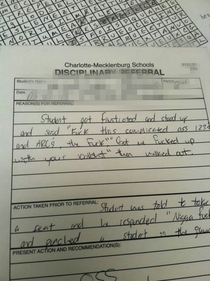 Charlotte-Mecklenburg Schools
DISCIPLINARY REFERRAL
Date
REASON(S) FOR REFERRAL:
Student got frustrated and stood up
and said "Fuck this complicated ass 1234
and ABCs the fuck" "Got me fucked up
with your" then walked out.
ACTION TAKEN PRIOR TO REFERRAL: Student was told to take
a seat and he responded "Nigga fuck
and punched student in the
PRESENT ACTION AND RECOMMENDATION(S):
OSS